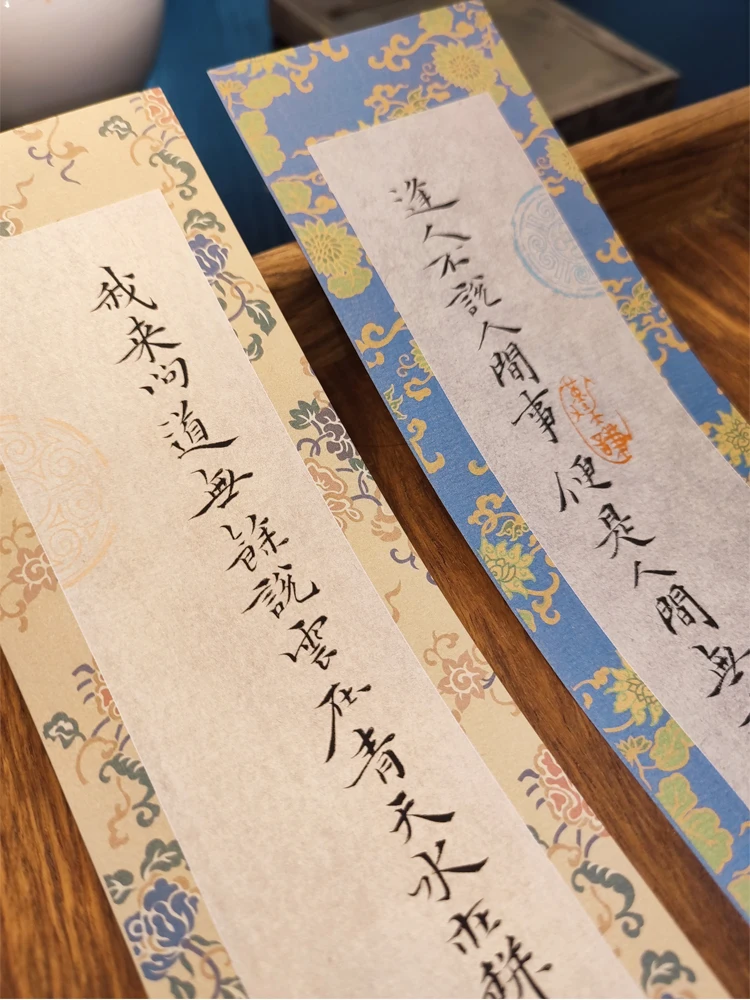 逢人不說人間事便是人間無
我来问道無餘說雲在青天水在缾